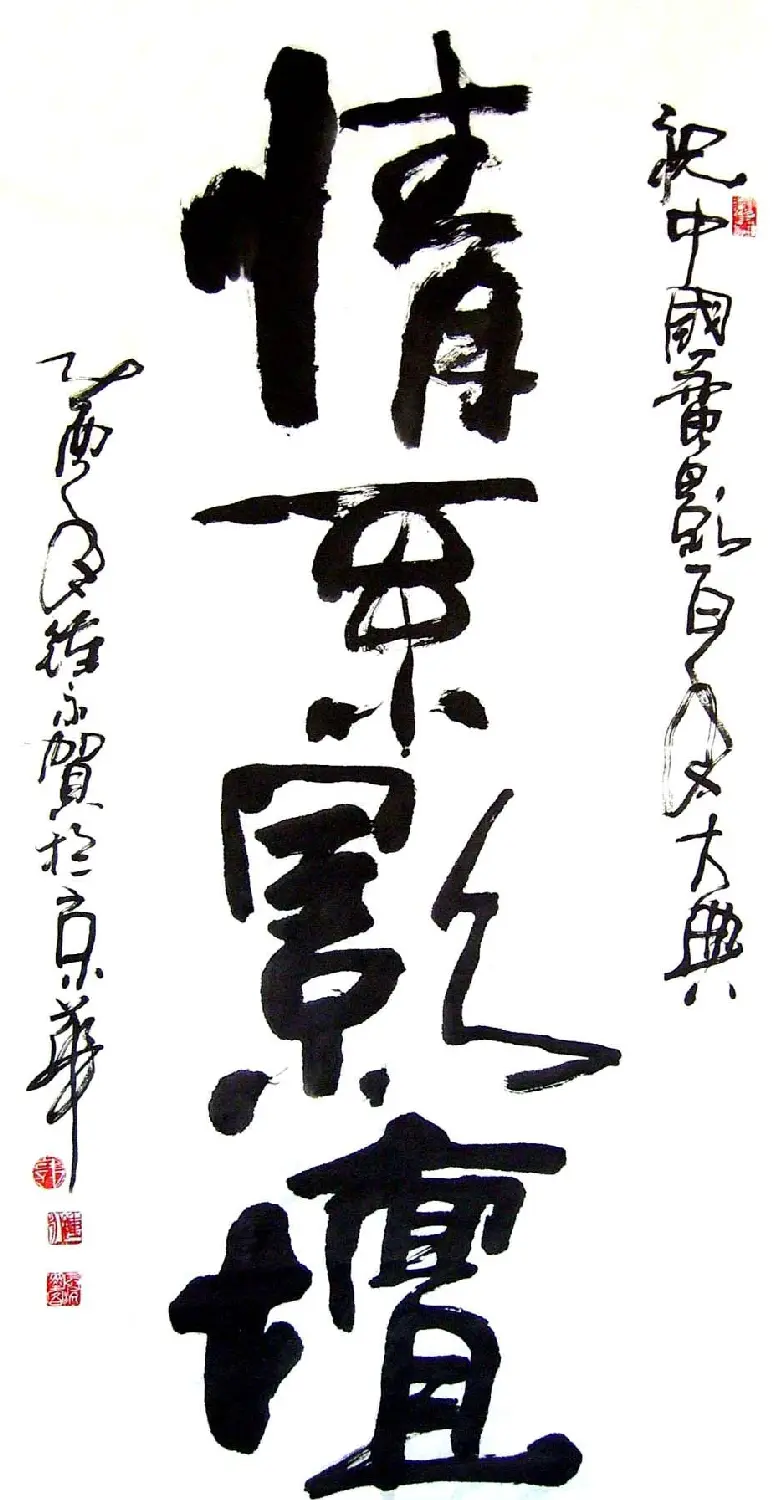 祝中國電影百年大典
情系影壇
乙酉年賀於京華